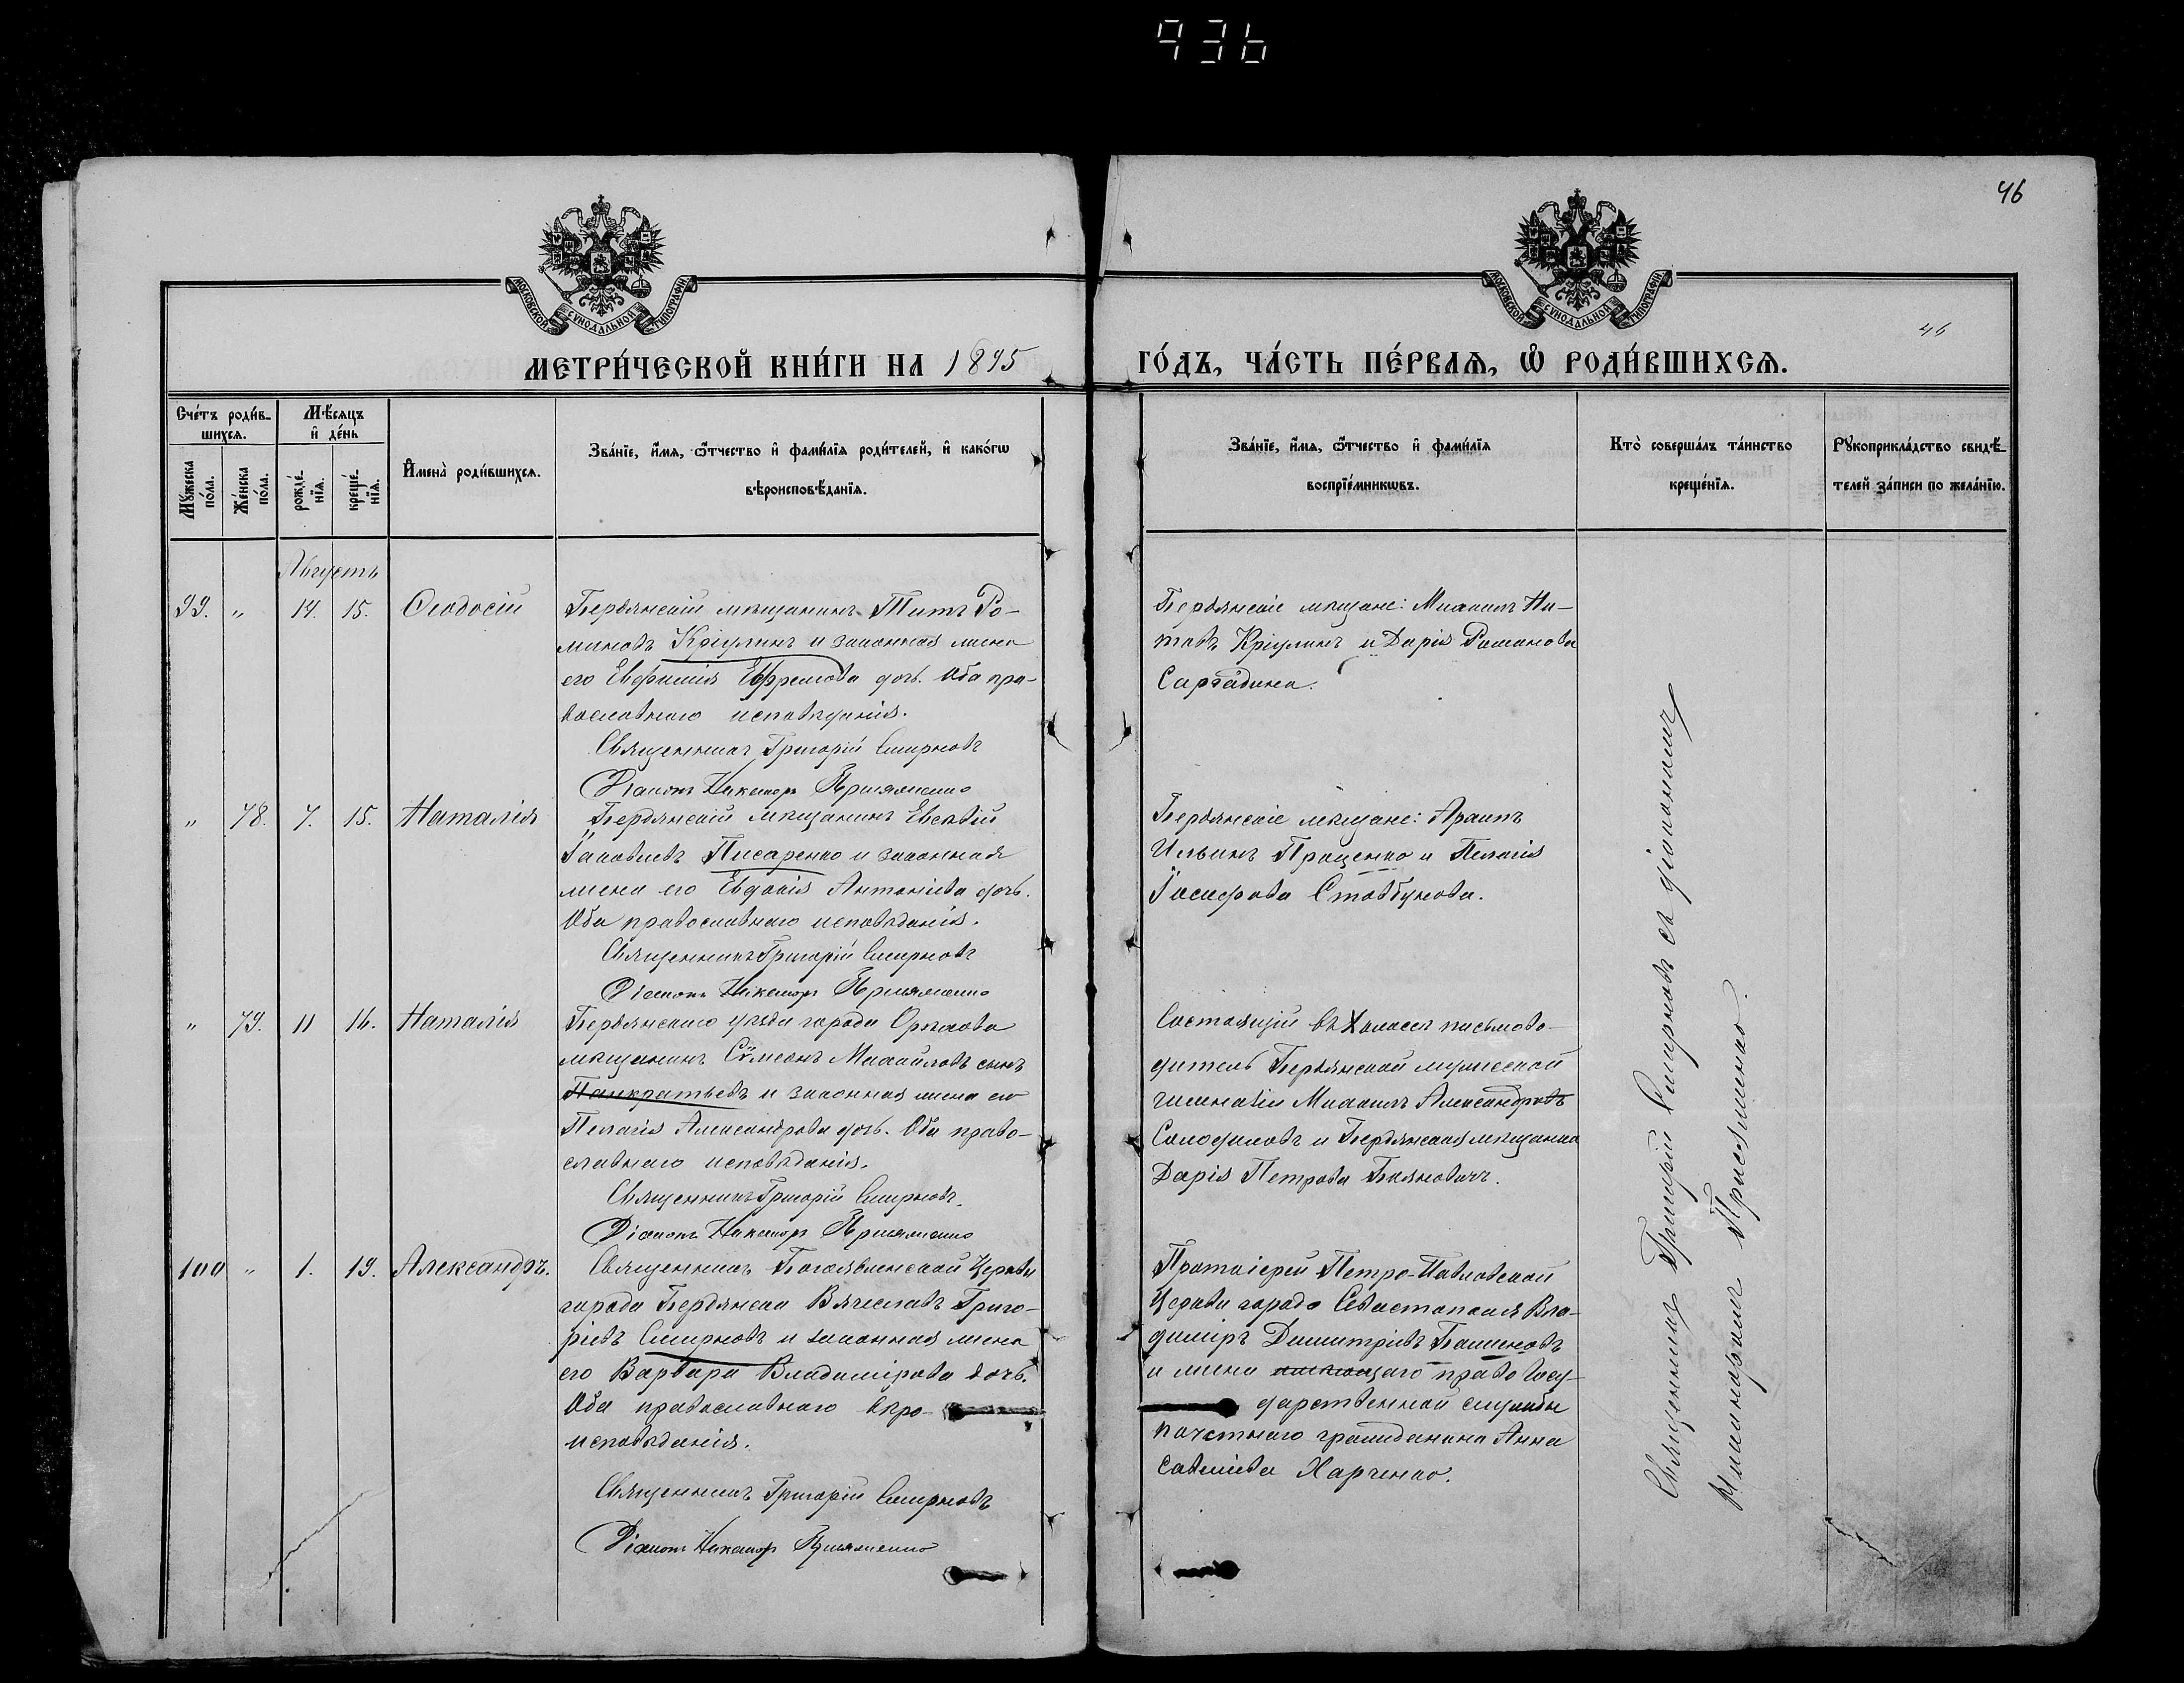 936
46
46
МОСКОВСКОЙ СУНОДАЛЬНОЙ ТИПОГРАФІИ
МОСКОВСКОЙ СУНОДАЛЬНОЙ ТИПОГРАФІИ
МЕТРИ́ЧЕСКОЙ КНИ́ГИ НА 1895
ГО́ДЪ, ЧА́СТЬ ПЕ́РВАѦ, Ѽ РОДИ́ВШИХСѦ.
Сче́тъ роди́в-
шихсѧ.
Мѣ́сѧцъ
и҆ де́нь
Мꙋ́жеска
по́ла.
Же́нска
по́ла.
рожде́-
нїѧ.
креще́-
нїѧ.
И҆мена̀ роди́вшихсѧ.
Зва́нїе, и҆́мѧ, ѻ҆́тчество и҆ фами́лїѧ роди́телей, и҆ како́гѡ
вѣроисповѣ́данїѧ.
Зва́нїе, и҆́мѧ, ѻ҆́тчество и҆ фами́лїѧ
воспрїе́мникѡвъ.
Кто̀ соверша́лъ та́инство
креще́нїѧ.
Рꙋкоприкла́дство свидѣ́-
телей за́писи по жела́нїю.
Августъ
99. „ 14. 15. Ѳеодосій
Бердянскій мѣщанинъ Титъ Ро-
мановъ Кріулинъ и законная жена
его Евфимія Ефремова дочь. Оба пра-
вославнаго исповѣданія.
Священникъ Григорій Смирновъ
Діаконъ Никаноръ Присяженко
Бердянскіе мѣщане: Михаилъ Ти-
товъ Кріулинъ и Дарія Романова
„ 78. 7. 15. Наталія
Бердянскій мѣщанинъ Евсевій
Іаковлевъ Писаренко и законная
жена его Евдокія Антоніева дочь.
Оба православнаго исповѣданія.
Священникъ Григорій Смирновъ
Діаконъ Никаноръ Присяженко
Бердянскіе мѣщане: Архипъ
Ильинъ Проценко и Пелагія
Іосифова Стовбунова.
„ 79. 11 16. Наталія
Бердянскаго уѣзда города Орѣхова
мѣщанинъ Сѵмеонъ Михайловъ сынъ
Панкратьевъ и законная жена его
Пелагія Александрова дочь. Оба право-
славнаго исповѣданія.
Священникъ Григорій Смирновъ.
Діаконъ Никаноръ Присяженко
Состоящій въ X классѣ письмово-
дитель Бердянской мужеской
гимназіи Михаилъ Александровъ
и Бердянская мѣщанка
Дарія Петрова
100 „ 1. 19. Александръ.
Священникъ Богоявленской Церкви
города Бердянска Вячеславъ Григо-
ріевъ Смирновъ и законная жена
его Варвара Владимірова дочь.
Оба православнаго вѣро-
исповѣданія.
Священникъ Григорій Смирновъ
Діаконъ Никаноръ Присяженко
Протоіерей Петро-Павловской
Церкви города Севастополя Вла-
диміръ Димитріевъ Баженовъ
и жена имѣющаго право Госу-
дарственной службы
почетнаго гражданина Анна
Савелиева Харченко.
Священникъ Григорій Смирновъ съ діакономъ
Никаноромъ Присяженко.